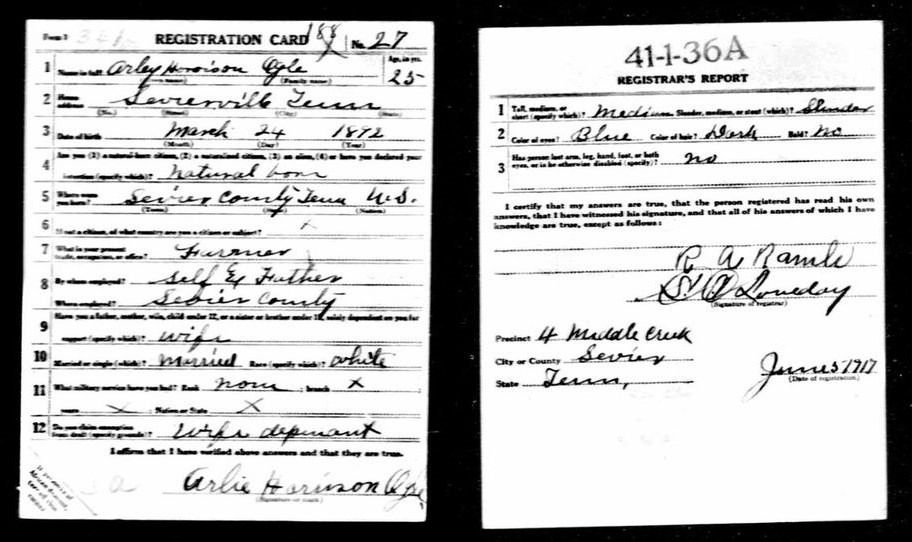 Form 1
REGISTRATION CARD
188
No. 27
1 Name in full Arley Horoison Ogle Age, in yrs. 25
(Family name)
2 Home address Sevierville Tenn
(No.) (Street) (City) (State)
3 Date of birth March 24 1892
(Month) (Day) (Year)
4 Are you (1) a natural-born citizen, (2) a naturalized citizen, (3) an alien, (4) or have you declared your
intention (specify which)? Natural born
5 Where were you born? Sevier County Tenn U.S.
(Town) (State) (Nation)
6 If not a citizen, of what country are you a citizen or subject? x
7 What is your present trade, occupation, or office? Farmer
8 By whom employed? Self & Father
Where employed? Sevier County
9 Have you a father, mother, wife, child under 12, or a sister or brother under 12, solely dependent on you for
support (specify which)? Wife
10 Married or single (which)? Married Race (specify which)? White
11 What military service have you had? Rank none ; branch x
years x ; Nation or State X
12 Do you claim exemption from draft (specify grounds)? Wife depenant
I affirm that I have verified above answers and that they are true.
Arlie Harrison Ogle
(Signature or mark)
41-1-36A
REGISTRAR'S REPORT
1 Tall, medium, or short (specify which)? Medium Slender, medium, or stout (which)? Slender
2 Color of eyes? Blue Color of hair? Dark Bald? No
3 Has person lost arm, leg, hand, foot, or both eyes, or is he otherwise disabled (specify)? no
I certify that my answers are true, that the person registered has read his own
answers, that I have witnessed his signature, and that all of his answers of which I have
knowledge are true, except as follows:
R A
Loveday
(Signature of registrar)
Precinct 4 Middle Creek
City or County Sevier
State Tenn,
June 5 1917
(Date of registration)